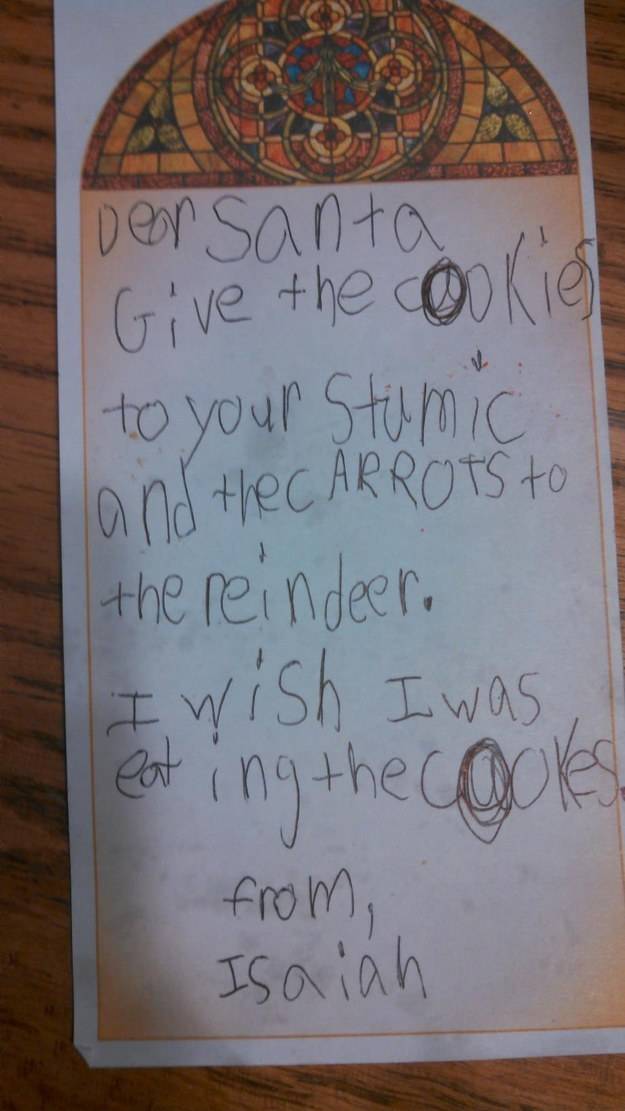 Dear Santa
Give the cookies
to your Stumic
and the cARROTS to
the reindeer.
I wish I was
eating the cookes.
from,
Isaiah